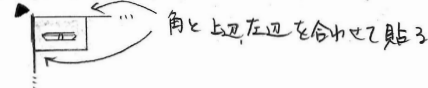 角と上辺,左辺を合わせて貼る